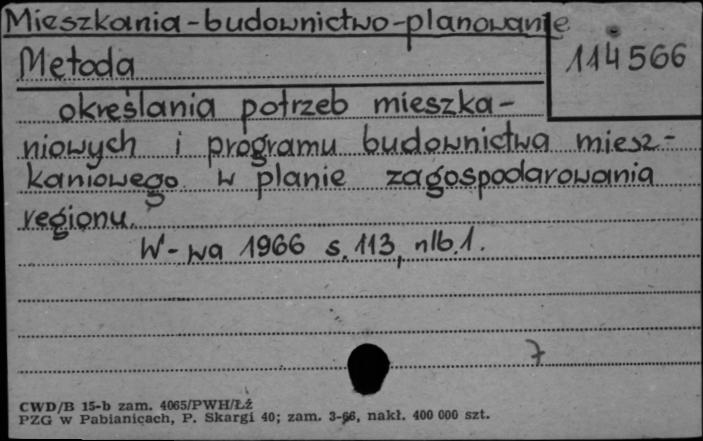 Mieszkania-budownictwo-planowanie
114566
Metoda
określania potrzeb mieszka-
niowych i programu budownictwa miesz-
kaniowego w planie zagospodarowania
regionu.
W-wa 1966 s. 113, nlb. 1.
7
CWD/B 15-b zam. 4065/PWH/Łź
PZG w Pabianicach, P. Skargi 40; zam. 3-66, nakł. 400 000 szt.